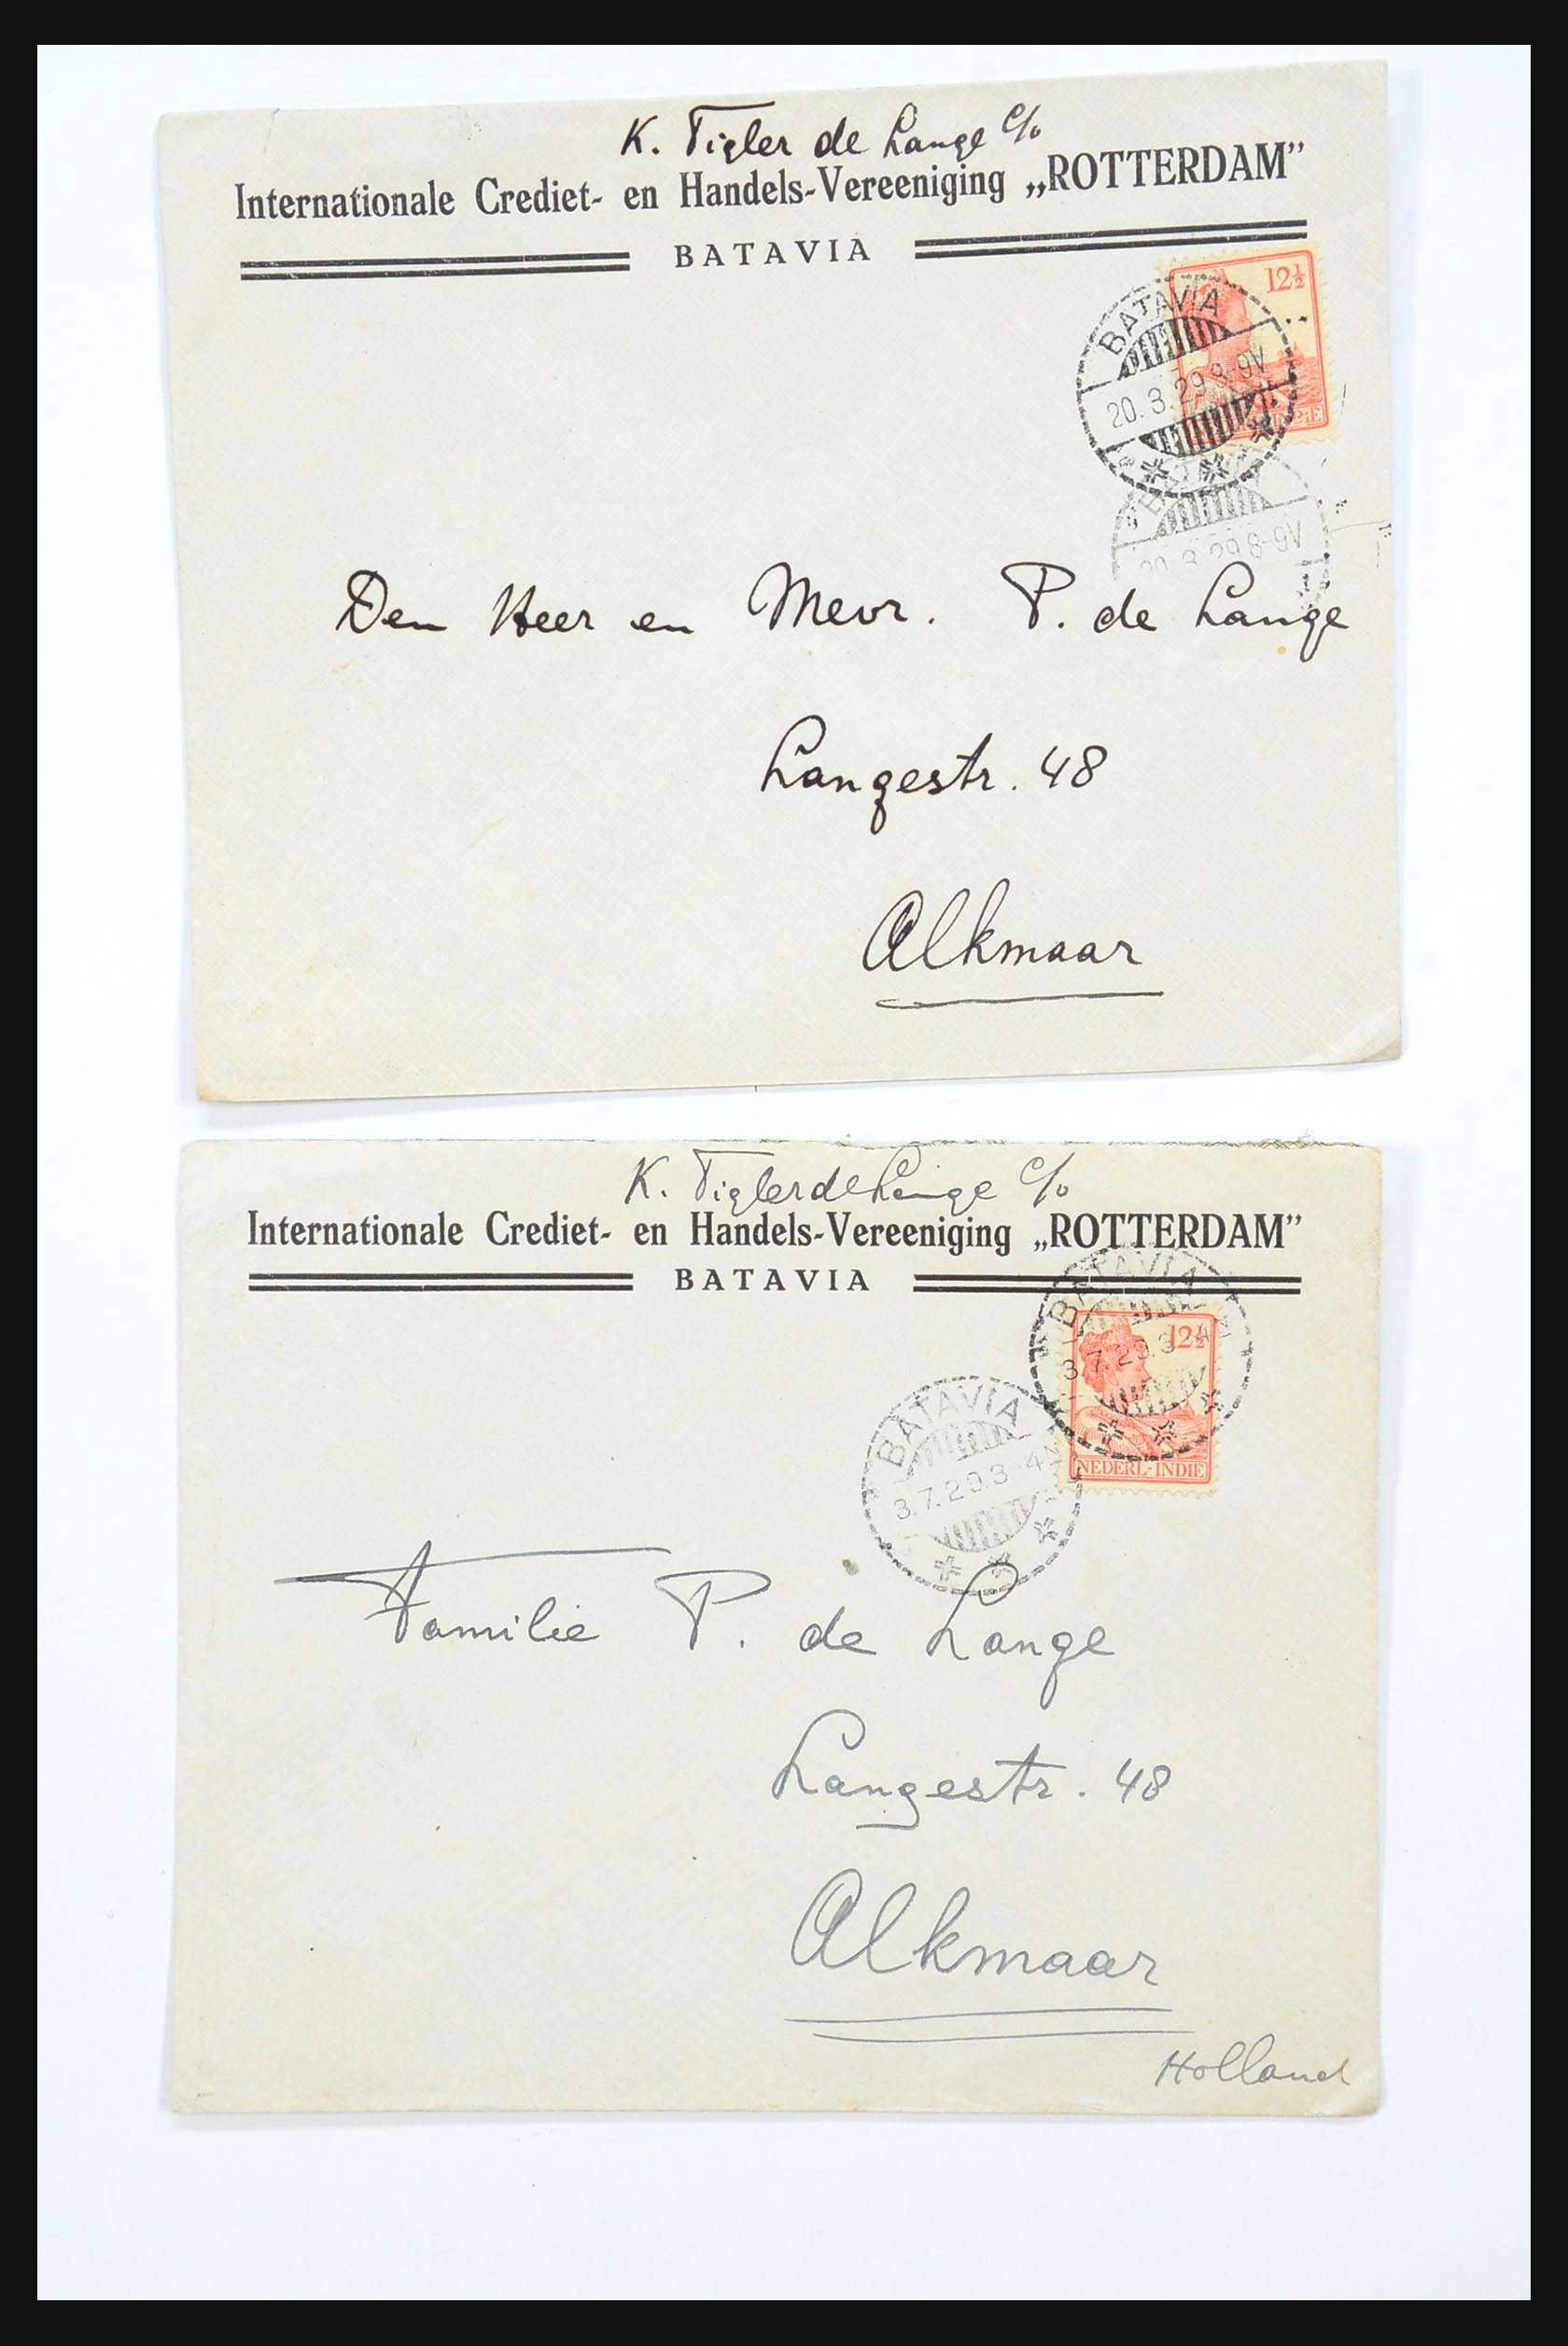 K. Tigler de Lange c/o
Internationale Crediet- en Handels-Vereeniging „ROTTERDAM”
BATAVIA
12½
BATAVIA
20.3.29 8-9V
BATAVIA
20.3.29 8-9V
Den Heer en Mevr. P. de Lange
Langestr. 48
Alkmaar
K. Tigler de Lange c/o
Internationale Crediet- en Handels-Vereeniging „ROTTERDAM”
BATAVIA
BATAVIA
12½
3.7.29.3-4N
NEDERL-INDIE
BATAVIA
3.7.29.3-4N
Familie P. de Lange
Langestr. 48
Alkmaar
Holland